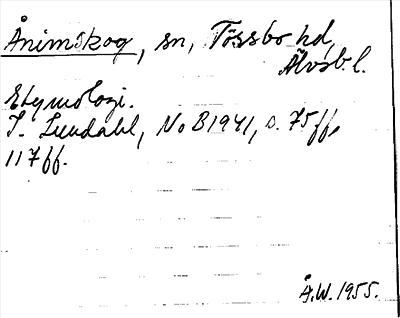 Ånimskog, sn, Tössbo hd,
Älvsb. l.
Etymologi.
I. Lundahl, NoB 1941, s. 75 ff,
117 ff.
Å.W. 1955.